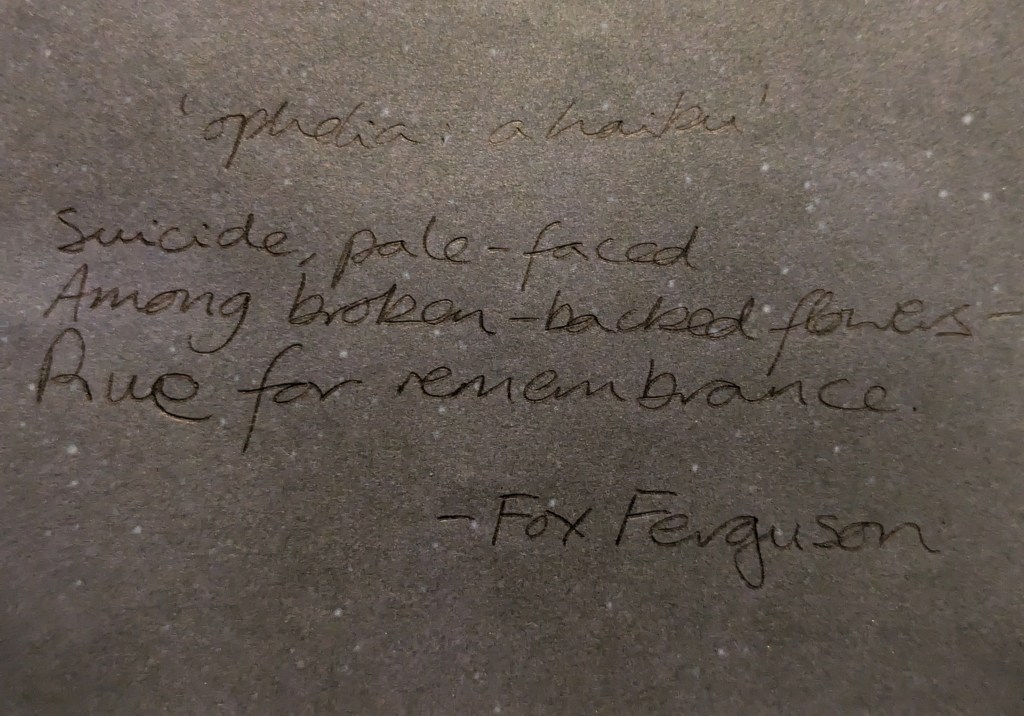 'ophelia: a haiku'
Suicide, pale-faced
Among broken-backed flowers-
Rue for remembrance.
-Fox Ferguson